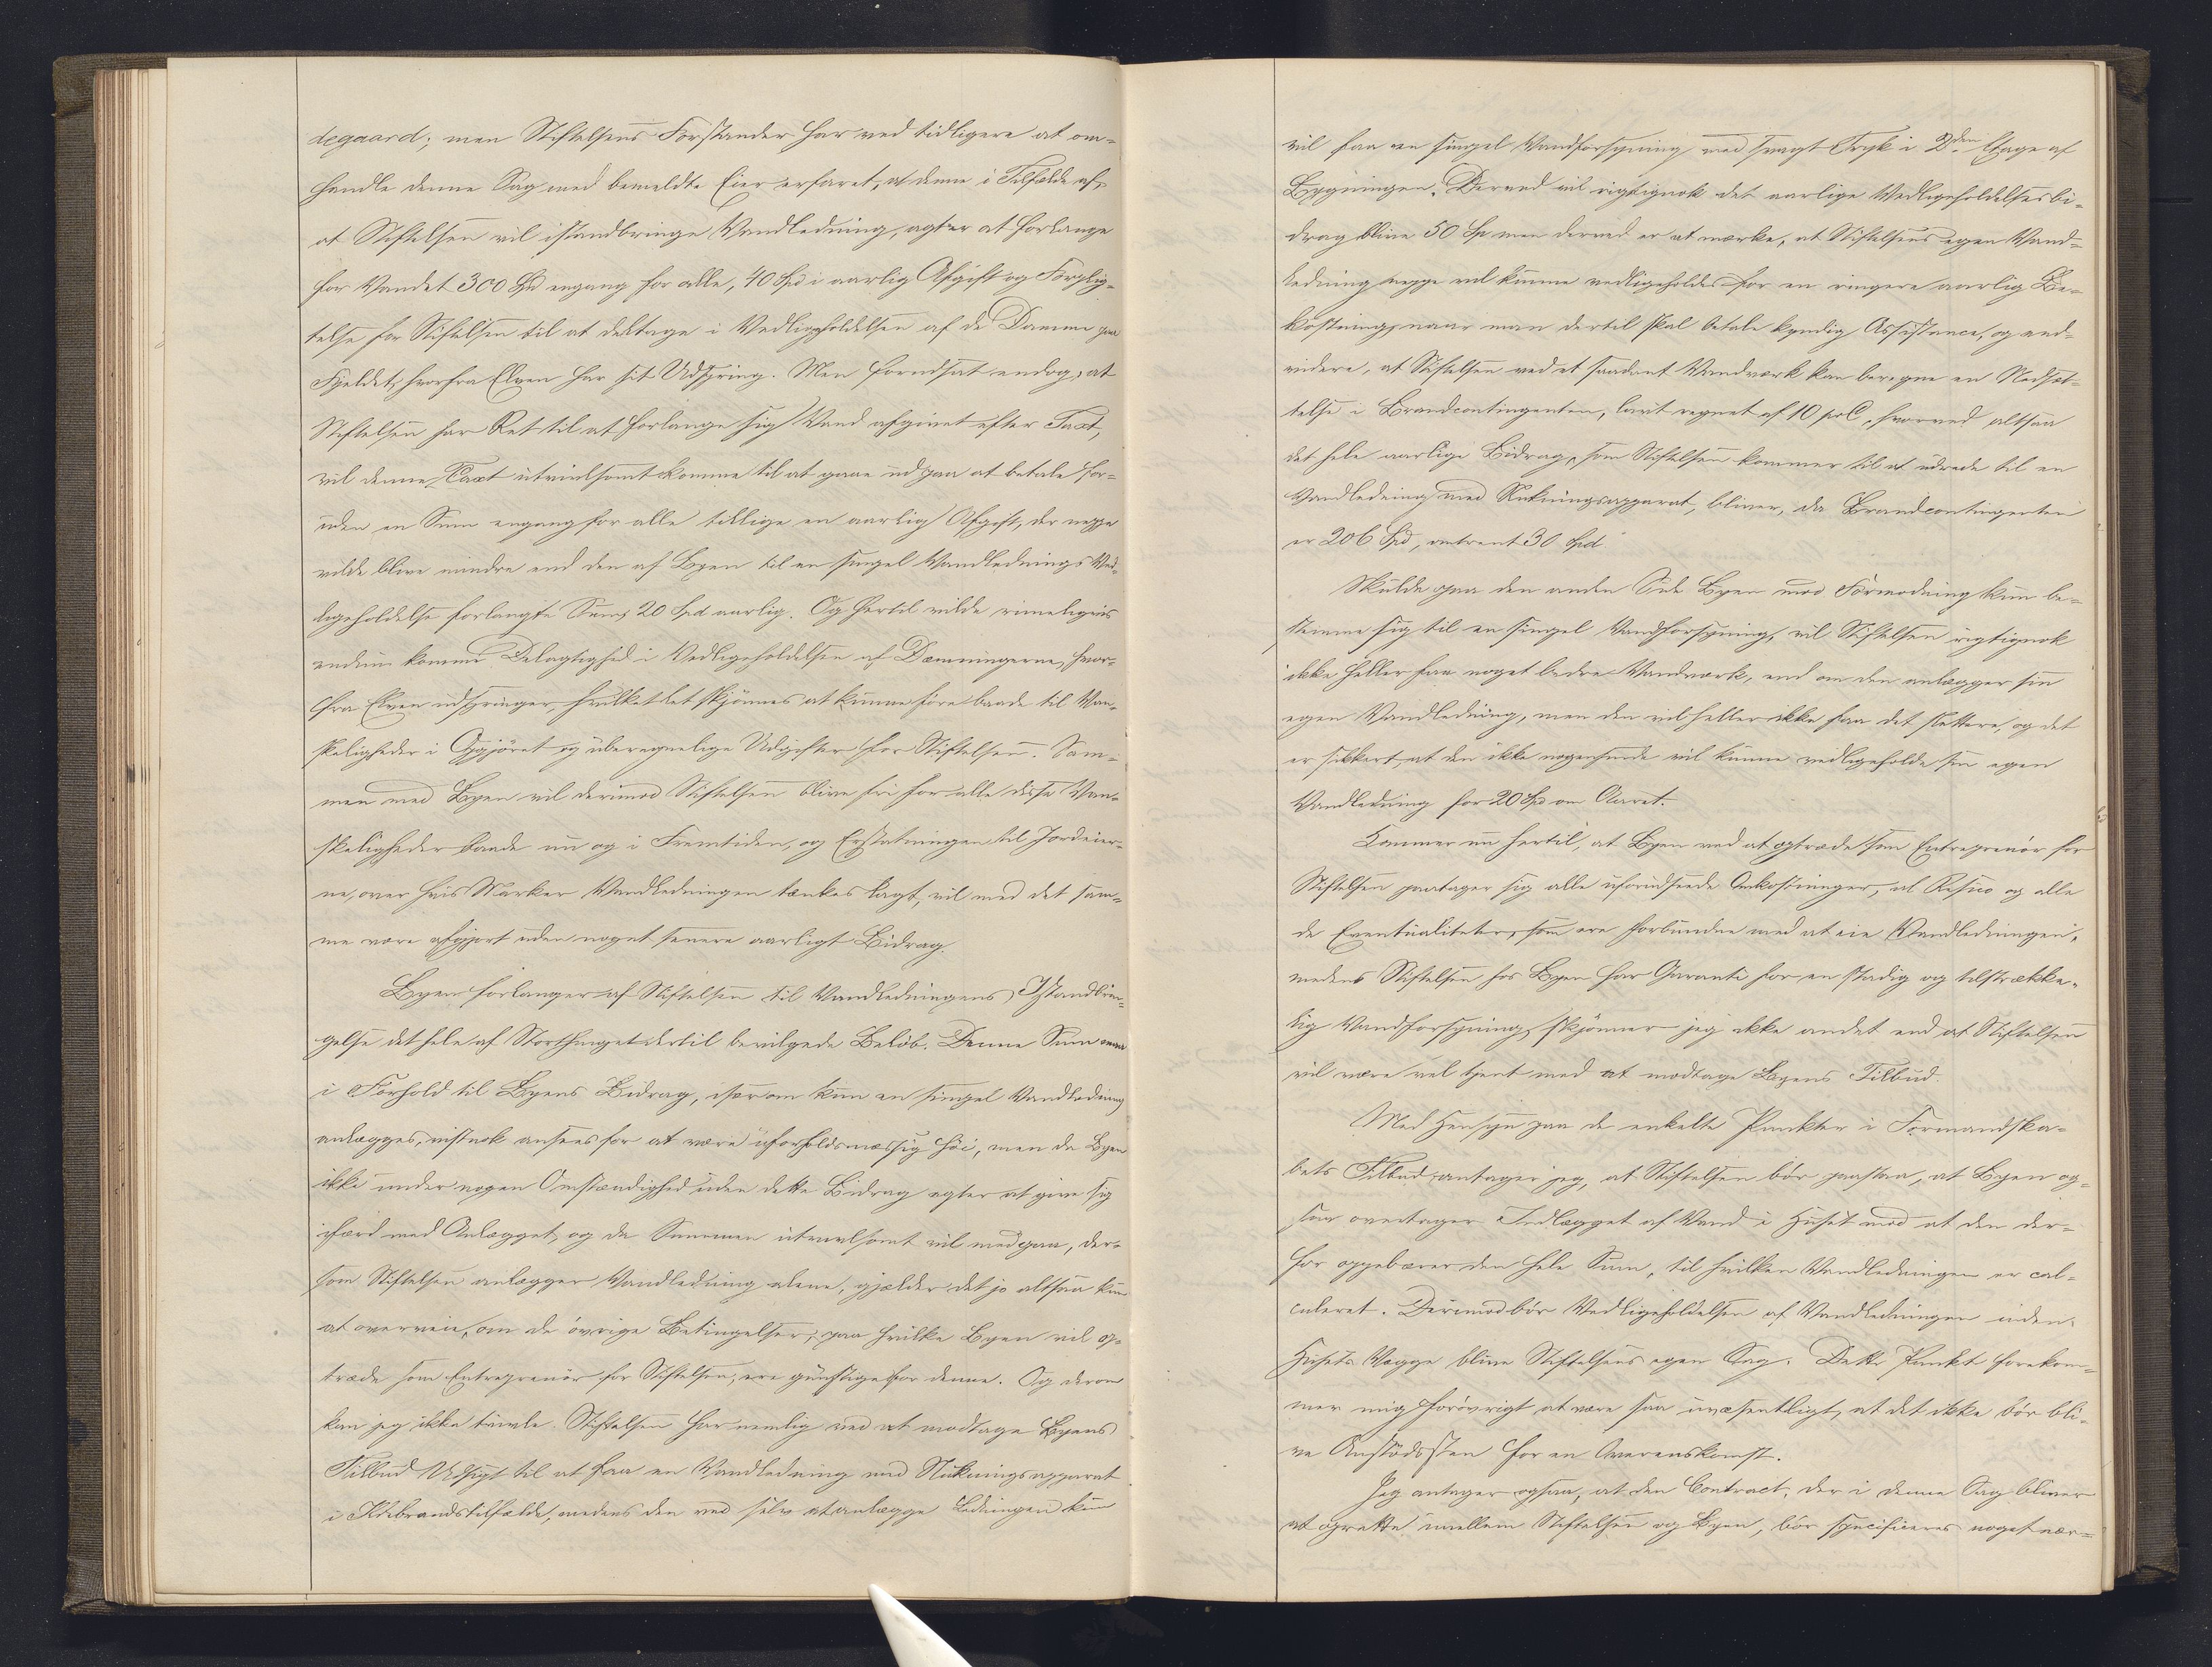 degaard; men Stiftelsens Forstander har ved tidligere at om-
handle denne Sag med bemeldte Eier erfaret, at denne i Tilfælde af,
at Stiftelsen vil istandbringe Vandledning, agter at forlange
for Vandet 300 Spd engang for alle, 40 Spd i aarlig Afgift og Forplig-
telse for Stiftelsen til at deltage i Vedligeholdelsen af de Damme paa
Fjeldet, hvorfra Elven har sit Udspring. Men forudsat endog, at
Stiftelsen har Ret til at forlange sig Vand afgivet efter Taxt,
vil denne Taxt utvivlsomt komme til at gaae ud paa at betale for-
uden en Sum engang for alle tillige en aarlig Afgift, der neppe
vilde blive mindre end den af Byen til en simpel Vandlednings Ved-
ligeholdelse forlangte Sum, 20 Spd aarlig. Og hertil vilde rimeligvis
endnu komme Delagtighed i Vedligeholdelsen af Dæmningerne, hvor-
fra Elven udspringer, hvilket let skjönnes at kunne före baade til Van-
skeligheder i Opgjöret og uberegnelige Udgifter for Stiftelsen. Sam-
men med Byen vil derimod Stiftelsen blive fri for alle disse Van-
skeligheder baade nu og i Fremtiden, og Erstatningen til Jordeier-
ne, over hvis Marker Vandledningen tænkes lagt, vil med det sam-
me være afgjort uden noget senere aarligt Bidrag.
Byen forlanger af Stiftelsen til Vandledningens Istandbrin-
gelse det hele af Storthinget dertil bevilgede Belöb. Denne Sum maa
i Forhold til Byens Bidrag, især om kun en simpel Vandledning
anlægges, vistnok ansees for at være uforholdsmæssig höi, men da Byen
ikke under nogen Omstændighed uden dette Bidrag agter at give sig
ifærd med Anlægget, og da Summen utvivlsomt vil medgaa, der-
som Stiftelsen anlægger Vandledning alene, gjælder det jo altsaa kun
at overveie, om de övrige Betingelser, paa hvilke Byen vil op-
træde som Entreprenör for Stiftelsen, ere gunstige for denne. Og derom
kan jeg ikke tvivle. Stiftelsen har nemlig ved at modtage Byens
Tilbud Udsigt til at faa en Vandledning med Slukningsapparat
i Ildebrandstilfælde, medens den ved selv at anlægge Ledningen kun
vil faa en simpel Vandforsyning med svagt Tryk i 2den Etage af
Bygningen. Derved vil rigtignok det aarlige Vedligeholdelsesbi-
drag blive 50 Sp men derved er at mærke, at Stiftelsens egen Vand-
ledning neppe vil kunne vedligeholdes for en ringere aarlig Be-
kostning, naar man dertil skal betale kyndig Assistance, og end-
videre, at Stiftelsen ved et saadant Vandværk kan beregne en Nedsæt-
telse i Brandcontingenten, lavt regnet af 10 proC., hvorved altsaa
det hele aarlige Bidrag, som Stiftelsen kommer til at udrede til en
Vandledning med Slukningsapparat, bliver, da Brandcontingenten
er 206 Spd, omtrent 30 Spd
Skulde paa den anden Side Byen mod Formodning kun be-
stemme sig til en simpel Vandforsyning, vil Stiftelsen rigtignok
ikke heller faa noget bedre Vandværk, end om den anlægger sin
egen Vandledning, men den vil heller ikke faa det slettere, og det
er sikkert, at den ikke nogensinde vil kunne vedligeholde sin egen
Vandledning for 20 Spd om Aaret.
Kommer nu hertil, at Byen ved at optræde som Entreprenör for
Stiftelsen paatager sig alle uforudseede Omkostninger, al Risico og alle
de Eventualiteter, som ere forbundne med at eie Vandledningen,
medens Stiftelsen hos Byen har Garanti for en stadig og tilstrække-
lig Vandforsyning, skjönner jeg ikke andet end at Stiftelsen
vil være vel tjent med at modtage Byens Tilbud.
Med Hensyn paa de enkelte Punkter i Formandska-
bets Tilbud antager jeg, at Stiftelsen bör paastaa, at Byen og-
saa overtager Indlægget af Vand i Huset mod at den der-
for oppebærer den hele Sum, til hvilken Vandledningen er cal-
culeret. Derimod bör Vedligeholdelsen af Vandledningen inden-
Husets Vægge blive Stiftelsens egen Sag. Dette Punkt forekom-
mer mig forövrigt at være saa uvæsentligt, at det ikke bör bli-
ve Anstödssten for en Overenskomst.
Jeg antager ogsaa, at den Contract, der i denne Sag bliver
at oprette imellem Stiftelsen og Byen, bör specificeres noget nær-